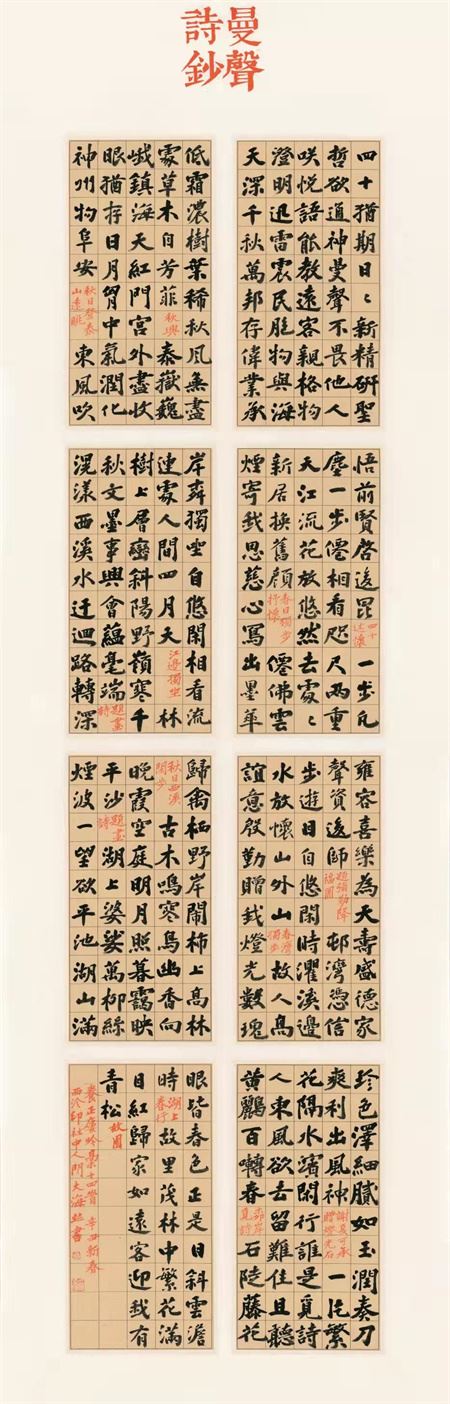 曼聲
詩鈔
四十猶期日〻新精研聖
哲欲道神曼聲不畏他人
咲悅語能教遠客親格物
澄明迅雷震民胞物與海
天深千秋萬邦存偉業承
悟前賢啓後昆 四十述懷 一步凡
塵一步僊相看咫尺兩重
天江流花放悠然去處〻
新居換舊顏 春日獨步抒懷 僊佛雲
煙寄我思慈心寫出墨華
雍容喜樂為天壽盛德家
聲資後師 題彌勒降福圖 邨灣憑信
步遊日自悠閒時濯溪邊
水放懷山外山 春灣獨步 故人高
誼意殷勤贈我燈光數瑰
珍色澤細膩如玉潤奏刀
爽利出風神 謝友可承贈燈光石 一片繁
花隔水濱閒行誰是覓詩
人東風欲去留難住且聽
黃鸝百囀春 岸覓詩 石陡藤花
低霜濃樹葉稀秋風無盡
處草木自芳菲 秋興 泰嶽巍
峨鎮海天紅門宮外盡收
眼猶存日月胷中氣潤化
神州物阜安 秋日登泰山遠眺 東風吹
岸舞獨坐自悠閒相看流
連處人間四月天 江邊獨坐 林
樹上層巒斜陽野嶺寒千
秋文墨事興會蘊毫端 題畫詩
滉漾西溪水迂迴路轉深
歸禽栖野岸鬧柿上高林
秋日西溪閒步 古木鳴寒鳥幽香向
晚霞空庭明月照暮靄映
平沙 題畫詩 湖上婆娑萬柳絲
煙波一望欲平池湖山滿
眼皆春色正是日斜雲澹
時 湖上春行 故里茂林中繁花滿
目紅歸家如遠客迎我有
青松 故園
養正廬吟稿十四首 辛丑新春
西泠印社中人門大海并書